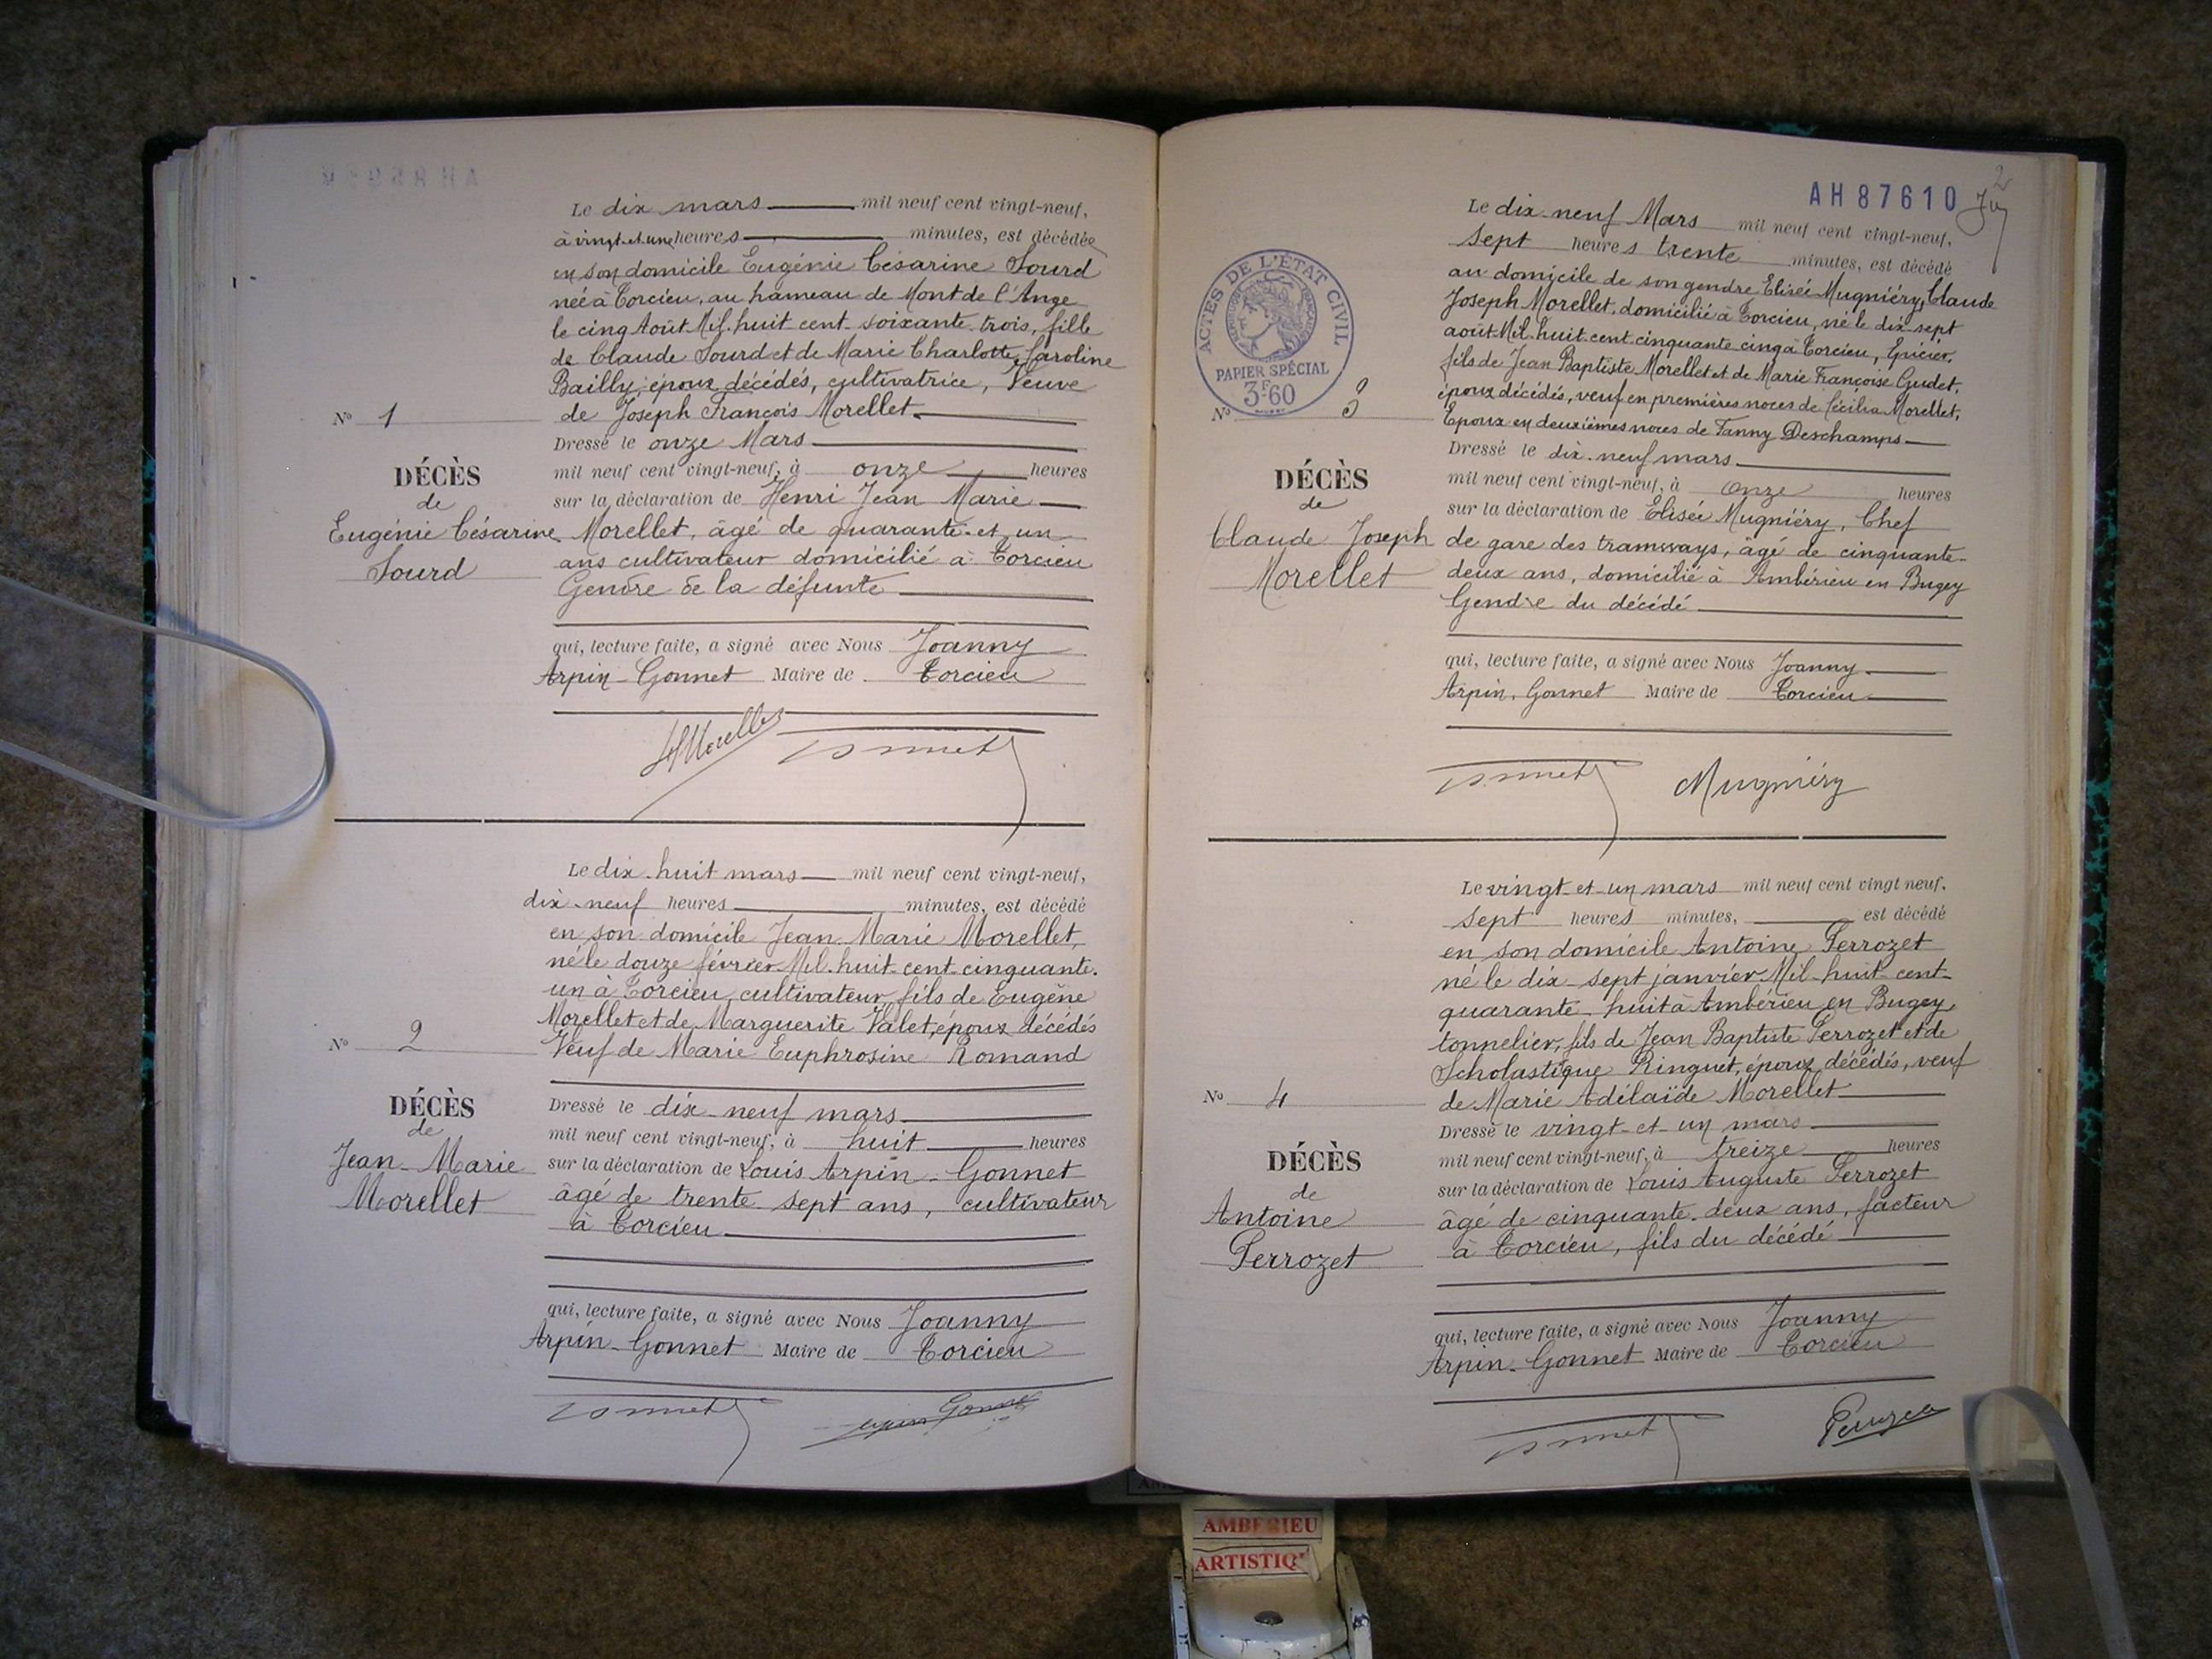 Le dix mars mil neuf cent vingt-neuf,
à vingt et une heures minutes, est décédée
en son domicile Eugénie Césarine Sourd
née à Torcieu, au hameau de Mont de l'Ange
le cinq Août Mil huit cent soixante trois, fille
de Claude Sourd et de Marie Charlotte Caroline
Bailly, époux décédés, cultivatrice, Veuve
de Joseph François Morellet
Dressé le onze Mars
mil neuf cent vingt-neuf, à onze heures
sur la déclaration de Henri Jean Marie
Morellet, âgé de quarante et un
ans cultivateur domicilié à Torcieu
Gendre de la défunte
qui, lecture faite, a signé avec Nous Joanny
Arpin-Gonnet Maire de Torcieu
No 1
DÉCÈS
de
Eugénie Césarine
Sourd
Le dix-huit mars mil neuf cent vingt-neuf,
dix-neuf heures minutes, est décédé
en son domicile Jean Marie Morellet,
né le douze février Mil huit cent cinquante
un à Torcieu, cultivateur, fils de Eugène
Morellet et de Marguerite Valet, époux décédés
Veuf de Marie Euphrosine Romand
Dressé le dix-neuf mars
mil neuf cent vingt-neuf, à huit heures
sur la déclaration de Louis Arpin-Gonnet
âgé de trente sept ans, cultivateur
à Torcieu
qui, lecture faite, a signé avec Nous Joanny
Arpin-Gonnet Maire de Torcieu
No 2
DÉCÈS
de
Jean-Marie
Morellet
AH 87610
2
Le dix-neuf Mars mil neuf cent vingt-neuf,
sept heures trente minutes, est décédé
au domicile de son gendre Elisée Mugniéry, Claude
Joseph Morellet, domicilié à Torcieu, né le dix-sept
août Mil huit cent cinquante cinq à Torcieu, Epicier,
fils de Jean Baptiste Morellet et de Marie Françoise Gudet,
époux décédés, veuf en premières noces de Cécilia Morellet,
Epoux en deuxièmes noces de Fanny Deschamps
Dressé le dix-neuf mars
mil neuf cent vingt-neuf, à onze heures
sur la déclaration de Elisée Mugniéry, Chef
de gare des tramways, âgé de cinquante-
deux ans, domicilié à Ambérieu en Bugey
Gendre du décédé
qui, lecture faite, a signé avec Nous Joanny
Arpin-Gonnet Maire de Torcieu
Mugniéry
ACTES DE L'ÉTAT CIVIL
PAPIER SPÉCIAL
3F60
No 3
DÉCÈS
de
Claude Joseph
Morellet
Le vingt-et-un mars mil neuf cent vingt neuf,
sept heures minutes, est décédé
en son domicile Antoine Perrozet
né le dix-sept janvier Mil huit cent
quarante-huit à Ambérieu en Bugey,
tonnelier, fils de Jean Baptiste Perrozet et de
Scholastique Ringuet, époux décédés, veuf
de Marie Adélaïde Morellet
Dressé le vingt-et un mars
mil neuf cent vingt-neuf, à treize heures
sur la déclaration de Louis Auguste Perrozet
âgé de cinquante-deux ans, facteur
à Torcieu, fils du décédé
qui, lecture faite, a signé avec Nous Joanny
Arpin-Gonnet Maire de Torcieu
No 4
DÉCÈS
de
Antoine
Perrozet
AMBERIEU
ARTISTIQ'